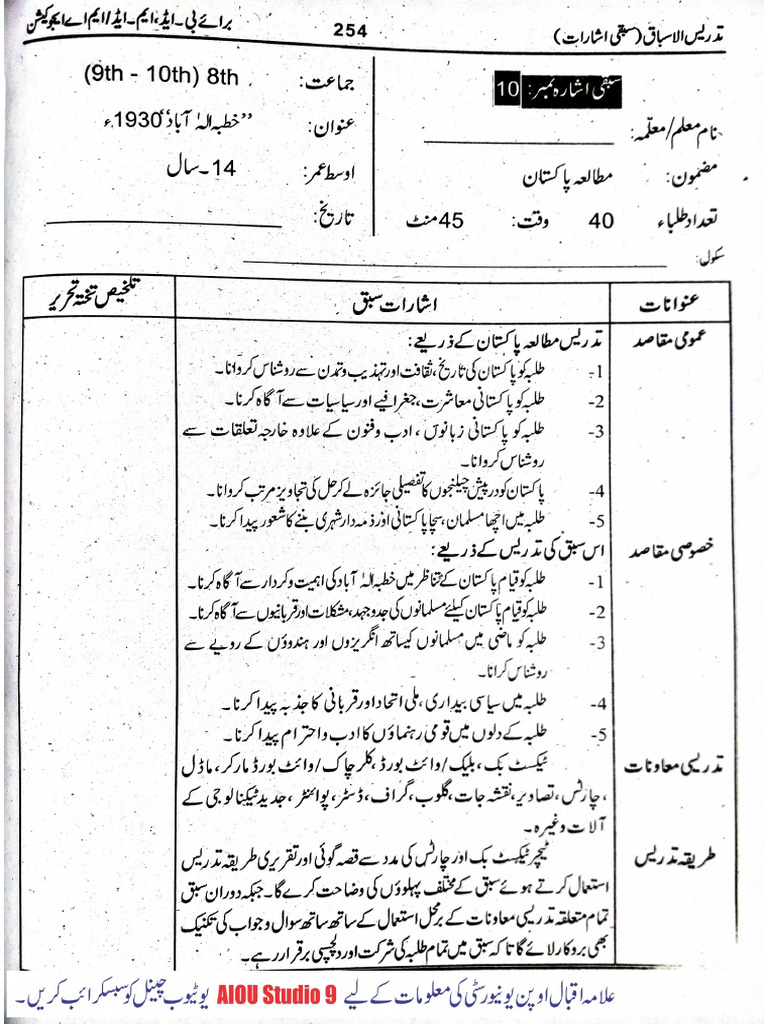 تدریس الاسباق (سبقی اشارات) 254 برائے بی۔ایڈ، ایم۔ایڈ/ایم اے ایجوکیشن
سبقی اشارہ نمبر: 10
نام معلم/معلمہ:
مضمون: مطالعہ پاکستان
تعداد طلباء 40 وقت: 45 منٹ
سکول:
جماعت: 8th (9th - 10th)
عنوان: ”خطبہ الہٰ آباد“ 1930ء
اوسط عمر: 14۔سال
تاریخ:
عنوانات اشارات سبق تلخیص تختہ تحریر
عمومی مقاصد تدریس مطالعہ پاکستان کے ذریعے:
1- طلبہ کو پاکستان کی تاریخ، ثقافت اور تہذیب و تمدن سے روشناس کروانا۔
2- طلبہ کو پاکستانی معاشرت، جغرافیے اور سیاسیات سے آگاہ کرنا۔
3- طلبہ کو پاکستانی زبانوں، ادب و فنون کے علاوہ خارجہ تعلقات سے
روشناس کروانا۔
4- پاکستان کو درپیش چیلنجوں کا تفصیلی جائزہ لے کر حل کی تجاویز مرتب کروانا۔
5- طلبہ میں اچھا مسلمان، سچا پاکستانی اور ذمہ دار شہری بننے کا شعور پیدا کرنا۔
خصوصی مقاصد اس سبق کی تدریس کے ذریعے:
1- طلبہ کو قیام پاکستان کے تناظر میں خطبہ الہٰ آباد کی اہمیت و کردار سے آگاہ کرنا۔
2- طلبہ کو قیام پاکستان کیلئے مسلمانوں کی جدوجہد، مشکلات اور قربانیوں سے آگاہ کرنا۔
3- طلبہ کو ماضی میں مسلمانوں کیساتھ انگریزوں اور ہندوؤں کے رویے سے
روشناس کرانا۔
4- طلبہ میں سیاسی بیداری، ملی اتحاد اور قربانی کا جذبہ پیدا کرنا۔
5- طلبہ کے دلوں میں قومی رہنماؤں کا ادب و احترام پیدا کرنا۔
تدریسی معاونات ٹیکسٹ بک، بلیک/وائٹ بورڈ، کلر چاک/وائٹ بورڈ مارکر، ماڈل
، چارٹس، تصاویر، نقشہ جات، گلوب، گراف، ڈسٹر، پوائنٹر، جدید ٹیکنالوجی کے
آلات وغیرہ۔
طریقہ تدریس ٹیچر ٹیکسٹ بک اور چارٹس کی مدد سے قصہ گوئی اور تقریری طریقہ تدریس
استعمال کرتے ہوئے سبق کے مختلف پہلوؤں کی وضاحت کرے گا۔ جبکہ دوران سبق
تمام متعلقہ تدریسی معاونات کے برمحل استعمال کے ساتھ ساتھ سوال و جواب کی تکنیک
بھی بروکار لائے گا تاکہ سبق میں تمام طلبہ کی شرکت اور دلچسپی برقرار رہے۔
علامہ اقبال اوپن یونیورسٹی کی معلومات کے لیے AIOU Studio 9 یوٹیوب چینل کو سبسکرائب کریں۔